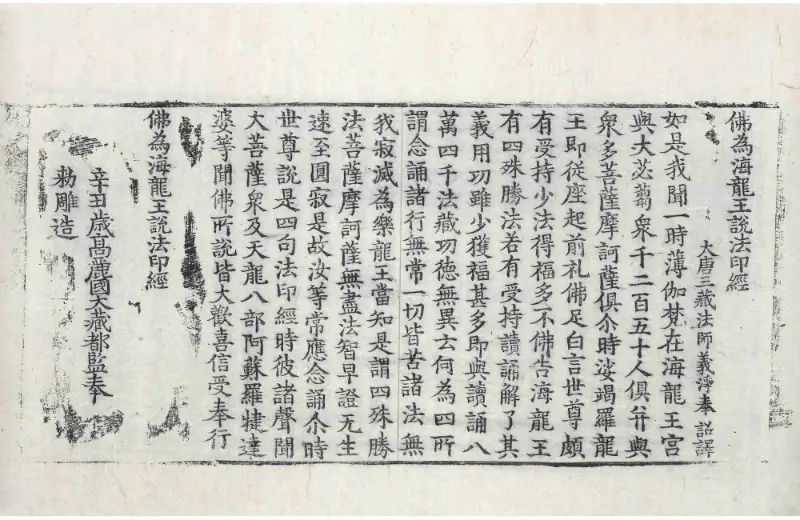 佛為海龍王說法印經
大唐三藏法師義淨奉 詔譯
如是我聞一時薄伽梵在海龍王宮
與大苾蒭衆千二百五十人俱并與
衆多菩薩摩訶薩俱尒時娑竭羅龍
王即從座起前礼佛足白言世尊頗
有受持少法得福多不佛告海龍王
有四殊勝法若有受持讀誦解了其
義用功雖少獲福甚多即與讀誦八
萬四千法藏功德無異云何為四所
謂念誦諸行無常一切皆苦諸法無
我寂滅為樂龍王當知是謂四殊勝
法菩薩摩訶薩無盡法智早證无生
速至圓寂是故汝等常應念誦尒時
世尊說是四句法印經時彼諸聲聞
大菩薩衆及天龍八部阿蘇羅揵達
婆等聞佛所說皆大歡喜信受奉行
佛為海龍王說法印經
辛丑歲高麗國大藏都監奉
勑雕造